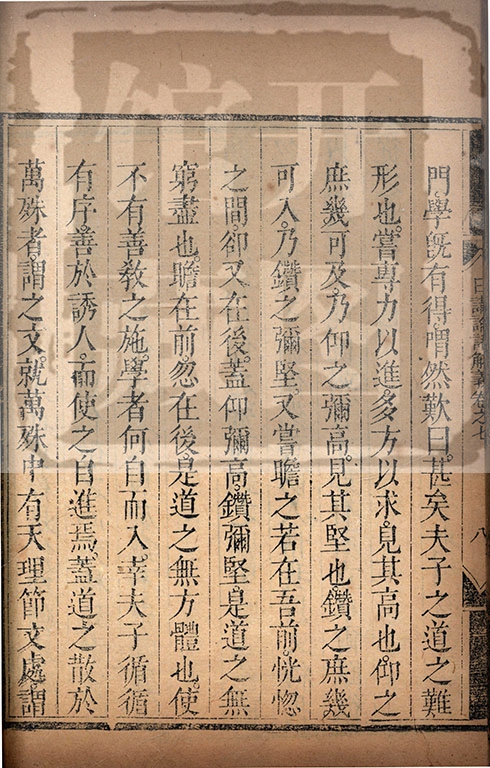 門學旣有得喟然歎曰甚矣夫子之道之難
形也嘗專力以進多方以求見其高也仰之
庶幾可及乃仰之彌高見其堅也鑽之庶幾
可入乃鑽之彌堅又嘗瞻之若在吾前恍惚
之間卻又在後蓋仰彌高鑽彌堅是道之無
窮盡也瞻在前忽在後是道之無方體也使
不有善敎之施學者何自而入幸夫子循循
有序善於誘人而使之自進焉蓋道之散於
萬殊者謂之文就萬殊中有天理節文處謂
日講論語解義卷之七
八